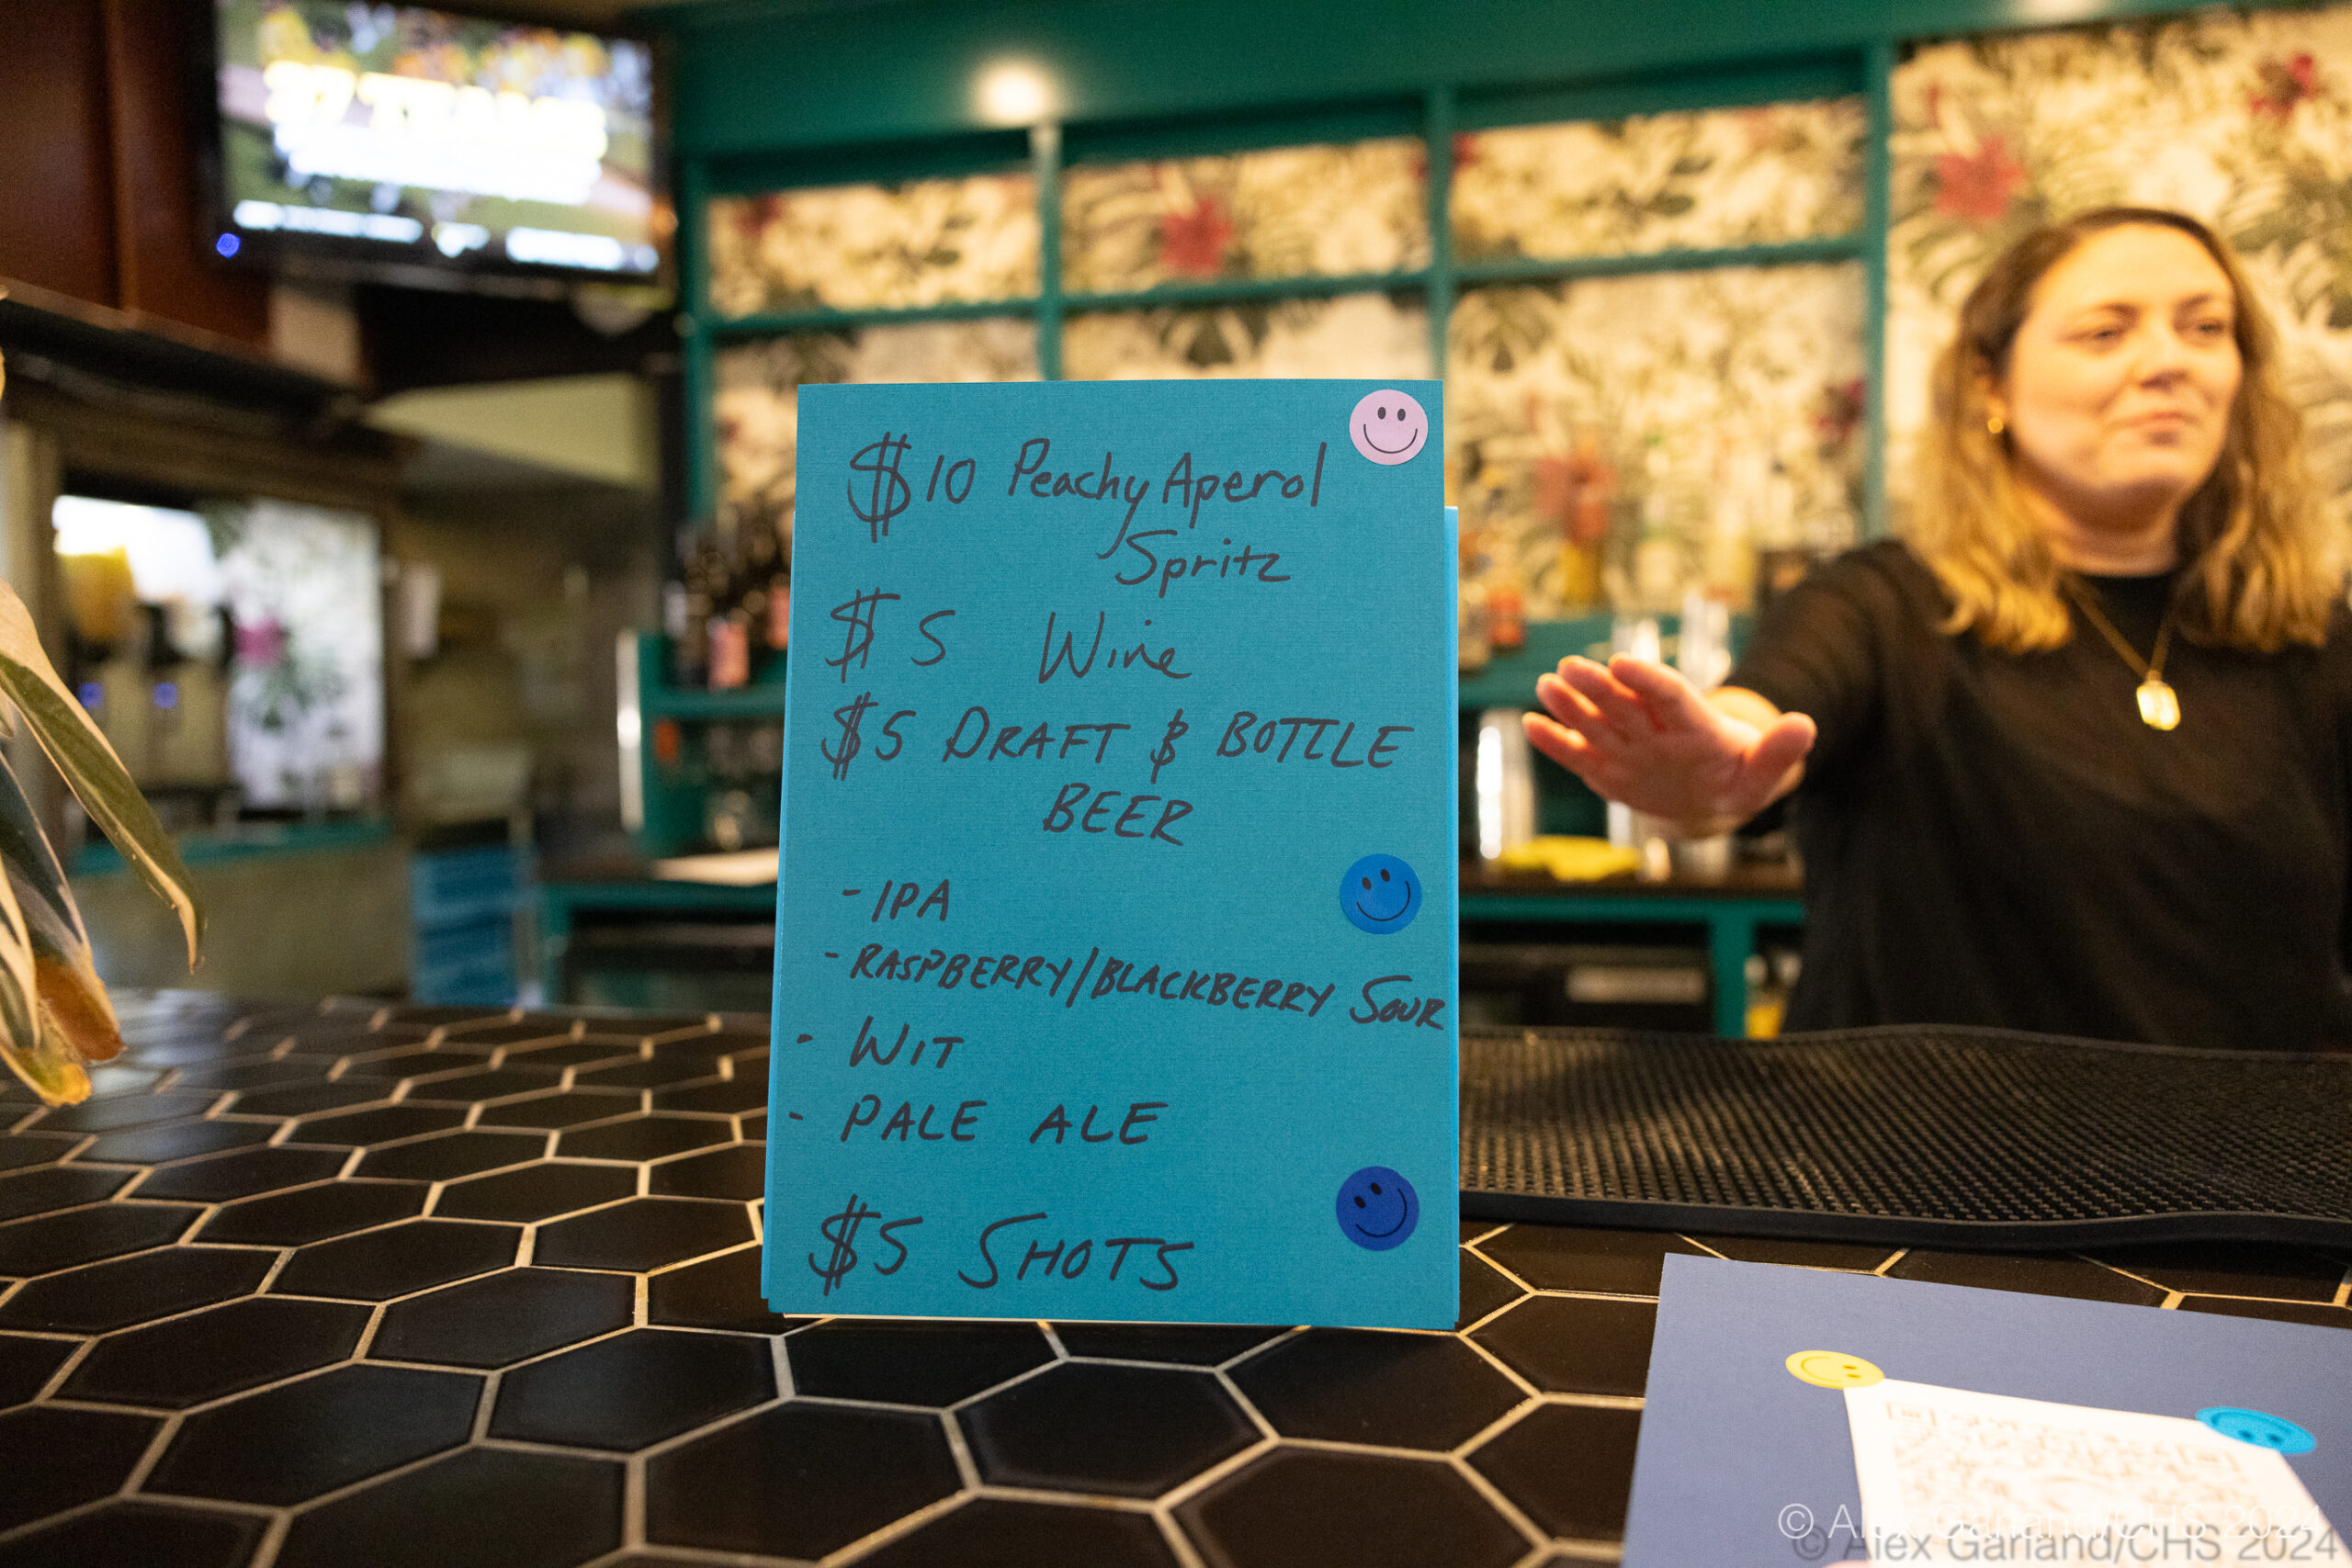 $10 Peachy Aperol
Spritz
$5 Wine
$5 DRAFT & BOTTLE
BEER
- IPA
- RASPBERRY/BLACKBERRY SOUR
- WIT
- PALE ALE
$5 SHOTS
© Alex Garland/CHS 2024
© Alex Garland/CHS 2024